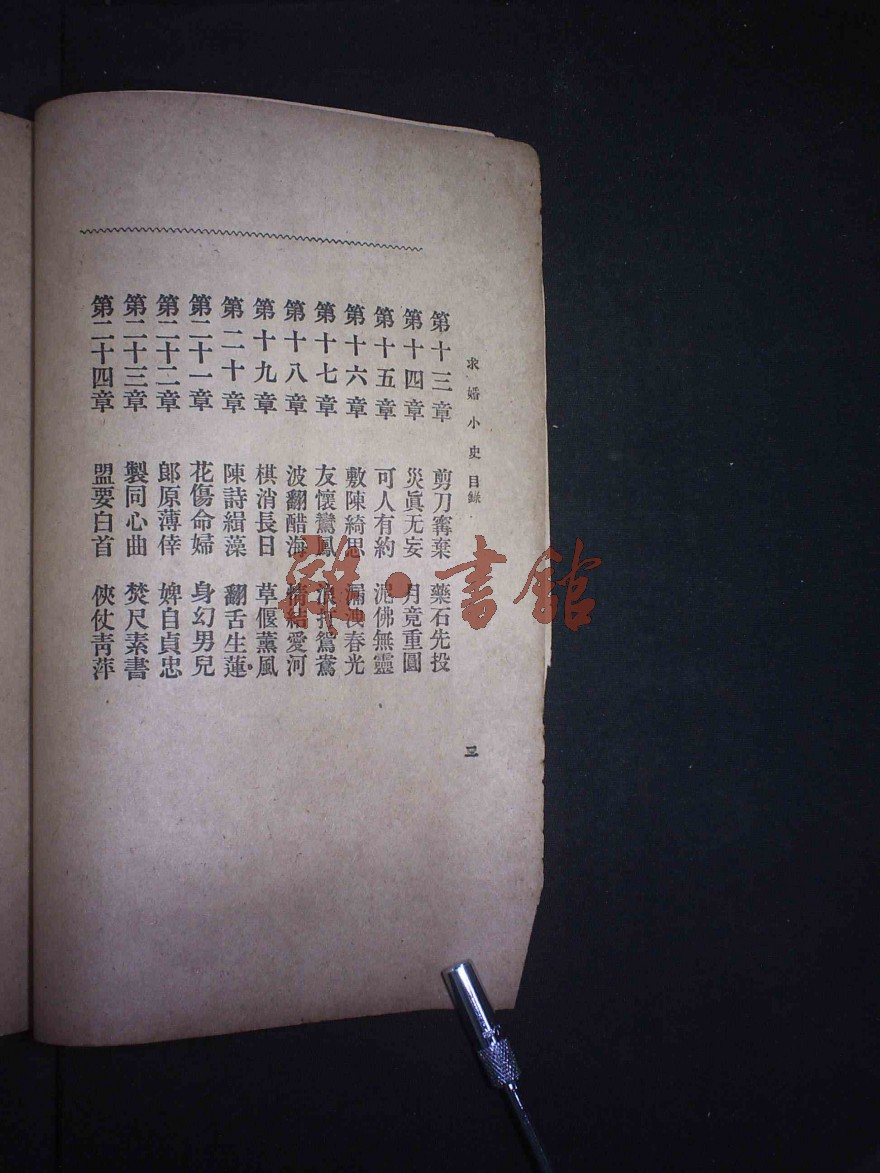 求婚小史 目錄
三
第十三章 剪刀寗棄 藥石先投
第十四章 災眞无妄 月竟重圓
第十五章 可人有約 泥佛無靈
第十六章 敷陳綺思 漏洩春光
第十七章 友懷鸞鳳 浪托鴛鴦
第十八章 波翻醋海 情結愛河
第十九章 棋消長日 草偃薰風
第二十章 陳詩緝藻 翻舌生蓮
第二十一章 花傷命婦 身幻男兒
第二十二章 郞原薄倖 婢自貞忠
第二十三章 製同心曲 焚尺素書
第二十四章 盟要白首 俠仗靑萍
雜·書舘